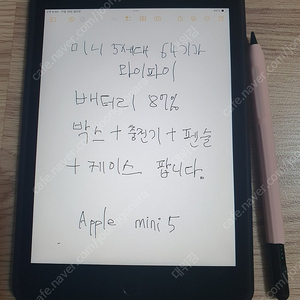 미니 5세대 64기가
와이파이
배터리 87%
박스 + 충전기 + 펜슬
+ 케이스 팝니다.
Apple mini 5